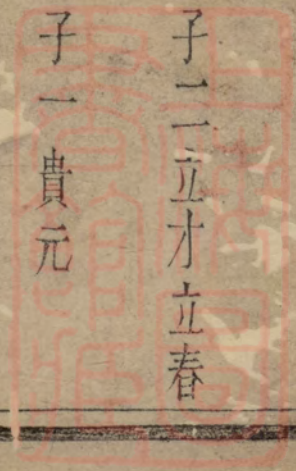 子二立才立春
子一貴元